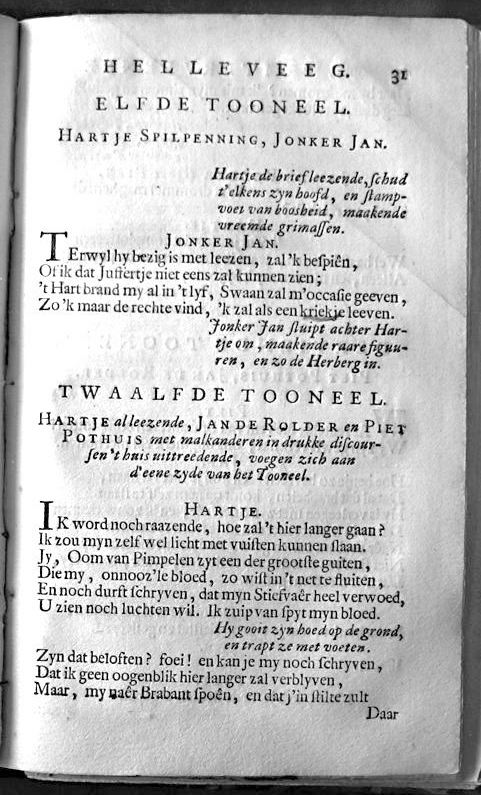 HELLEVEEG. 31
ELFDE TOONEEL.
HARTJE SPILPENNING, JONKER JAN.
Hartje de brief leezende, ſchud
t'elkens zyn hoofd, en ſtamp-
voet van boosheid, maakende
vreemde grimaſſen.
JONKER JAN.
TErwyl hy bezig is met leezen, zal 'k beſpiên,
Of ik dat Juffertje niet eens zal kunnen zien;
't Hart brand my al in 't lyf, Swaan zal m'occaſie geeven,
Zo 'k maar de rechte vind, 'k zal als een kriekje leeven.
Jonker Jan ſluipt achter Har-
tje om, maakende raare figuu-
ren, en zo de Herberg in.
TWAALFDE TOONEEL.
HARTJE al leezende, JAN DE ROLDER en PIET
POTHUIS met malkanderen in drukke diſcour-
ſen 't huis uittreedende, voegen zich aan
d'eene zyde van het Tooneel.
HARTJE.
IK word noch raazende, hoe zal 't hier langer gaan?
Ik zou myn zelf wel licht met vuiſten kunnen ſlaan.
Jy, Oom van Pimpelen zyt een der grootſte guiten,
Die my, onnooz'le bloed, zo wiſt in 't net te fluiten,
En noch durft ſchryven, dat myn Stiefvaêr heel verwoed,
U zien noch luchten wil. Ik zuip van ſpyt myn bloed.
Hy gooit zyn hoed op de grond,
en trapt ze met voeten.
Zyn dat beloften? foei! en kan je my noch ſchryven,
Dat ik geen oogenblik hier langer zal verblyven,
Maar, my naêr Brabant ſpoên, en dat j'in ſtilte zult
Daar